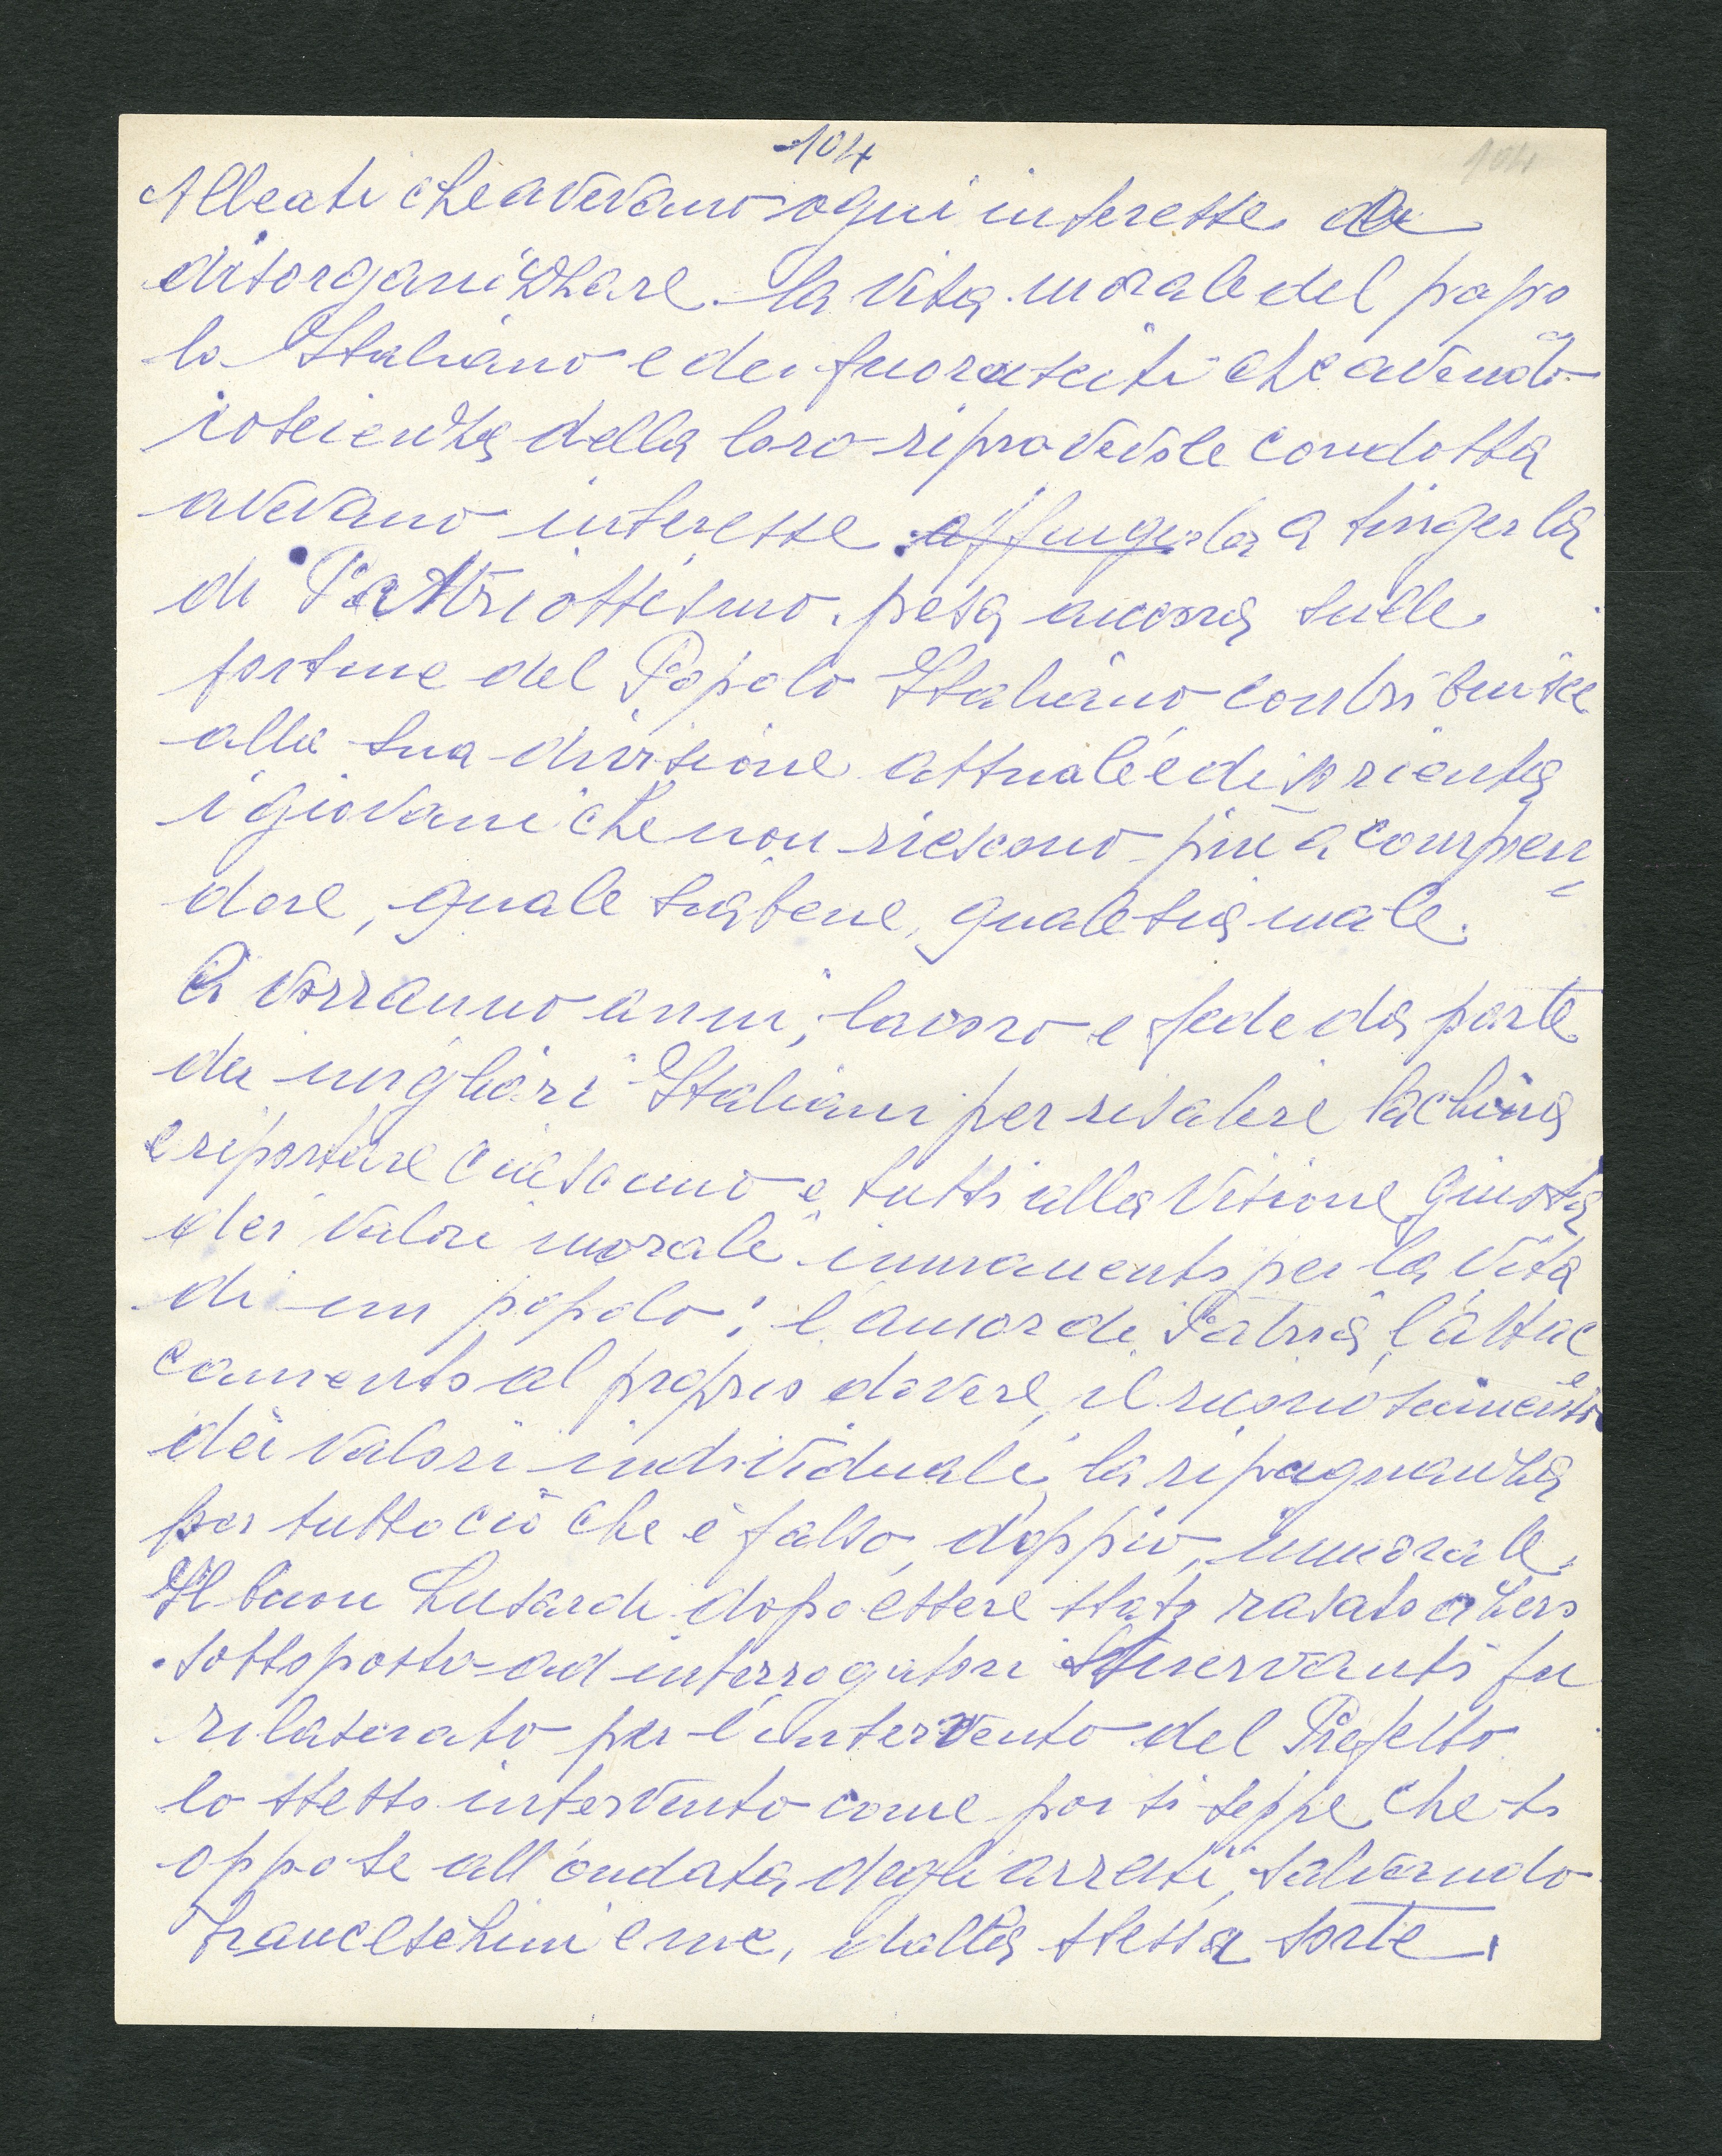 104
104
Alleati che avevano ogni interesse a
disorganizzare la vita morale del popo
lo Italiano e dei fuorusciti che avendo
coscienza della loro riprovevole condotta
avevano interesse a tingerla
di Pattriottismo. pesa ancora sulle
fortune del Popolo Italiano contribuisce
alla sua divisione attuale e disorienta
i giovani che non riescono più a compren
dere, quale sia bene, quale sia male.
Ci vorranno anni, lavoro e fede da parte
dei migliori Italiani per risalire la china
e riportare ciascuno e tutti alla visione giusta
dei valori morali immanenti per la vita
di un popolo: l'amor di Patria, l'attac
camento al proprio dovere, il riconoscimento
dei valori individuali, la ripugnanza
per tutto ciò che è falso, doppio, immorale.
Il buon Lusardi dopo essere stato rasato a zero
sottoposto ad interrogatori snervanti fu
rilasciato per l'intervento del Prefetto
lo stesso intervento come poi si seppe che si
oppose all'ondata degli arresti, salvando
Franceschini e me, dalla stessa sorte.